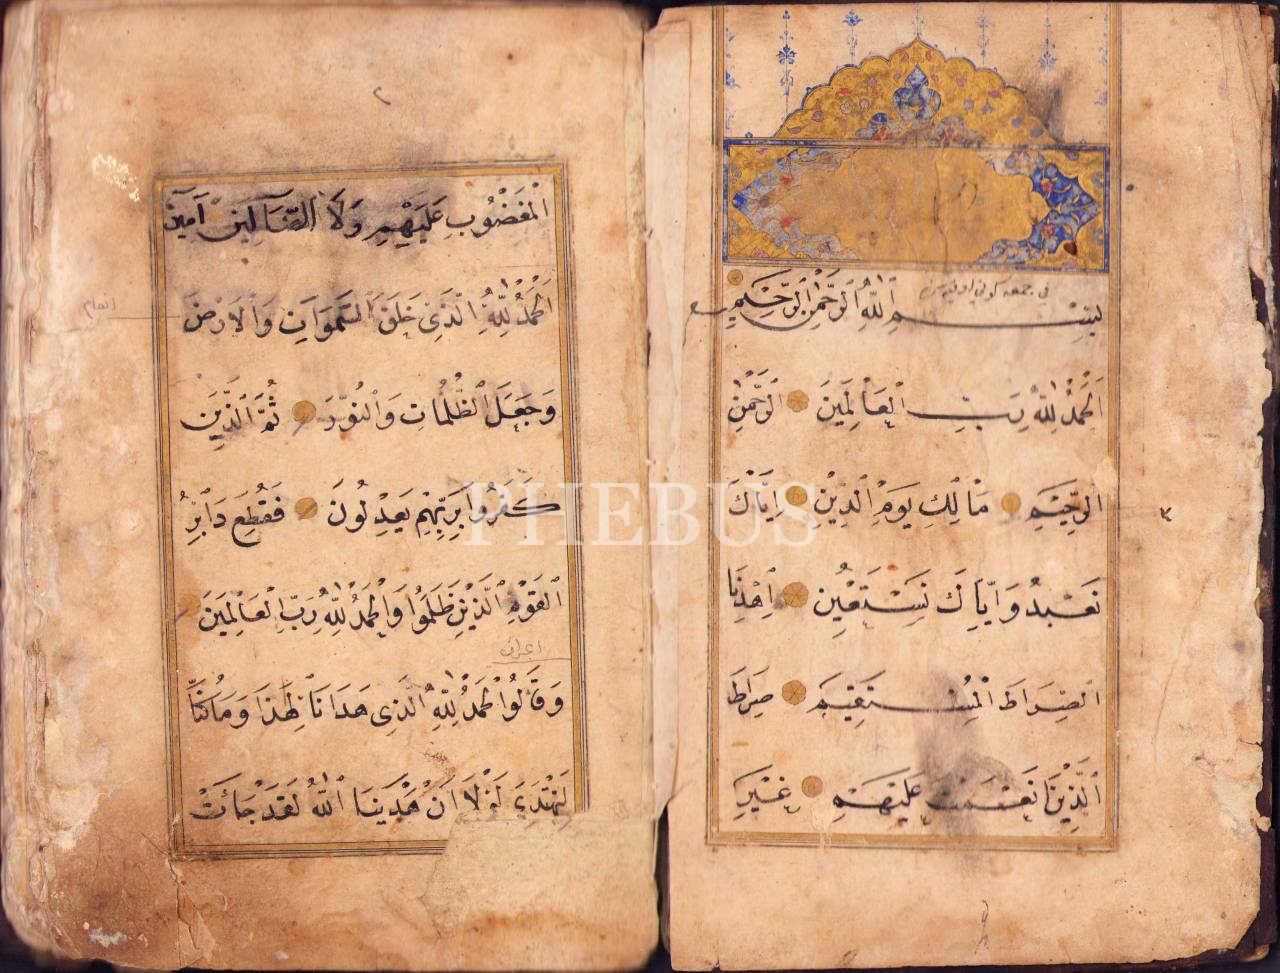 بِسْمِ اللّٰهِ الرَّحْمٰنِ الرَّحِيمِ
اَلْحَمْدُ لِلّٰهِ رَبِّ الْعَالَمِينَ الرَّحْمٰنِ
الرَّحِيمِ مَالِكِ يَوْمِ الدِّينِ اِيَّاكَ
نَعْبُدُ وَاِيَّاكَ نَسْتَعِينُ اِهْدِنَا
الصِّرَاطَ الْمُسْتَقِيمَ صِرَاطَ
الَّذِينَ اَنْعَمْتَ عَلَيْهِمْ غَيْرِ
٢
الْمَغْضُوبِ عَلَيْهِمْ وَلَا الضَّالِّينَ اٰمِينَ
اَلْحَمْدُ لِلّٰهِ الَّذِي خَلَقَ السَّمٰوَاتِ وَالْاَرْضَ
انعام
وَجَعَلَ الظُّلُمَاتِ وَالنُّورَ ثُمَّ الَّذِينَ
كَفَرُوا بِرَبِّهِمْ يَعْدِلُونَ فَقُطِعَ دَابِرُ
الْقَوْمِ الَّذِينَ ظَلَمُوا وَالْحَمْدُ لِلّٰهِ رَبِّ الْعَالَمِينَ
اعراف
وَقَالُوا الْحَمْدُ لِلّٰهِ الَّذِي هَدَانَا لِهٰذَا وَمَا كُنَّا
لِنَهْتَدِيَ لَوْلَا اَنْ هَدٰينَا اللّٰهُ لَقَدْ جَائَتْ
PHEBUS